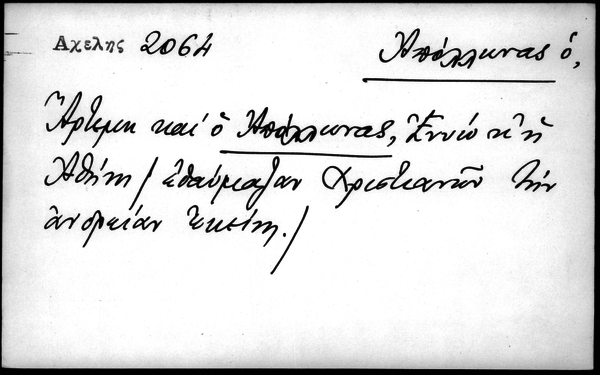 Αχελης 2064 Ἀπόλλωνας ὁ,
Ἄρτεμη καί ὁ Ἀπόλλωνας, Ἐννιώ κ' ἡ
Ἀθήνη / ἐθαύμαζαν Χριστιανῶν τήν
ἀνδρείαν ἐκείνη. /